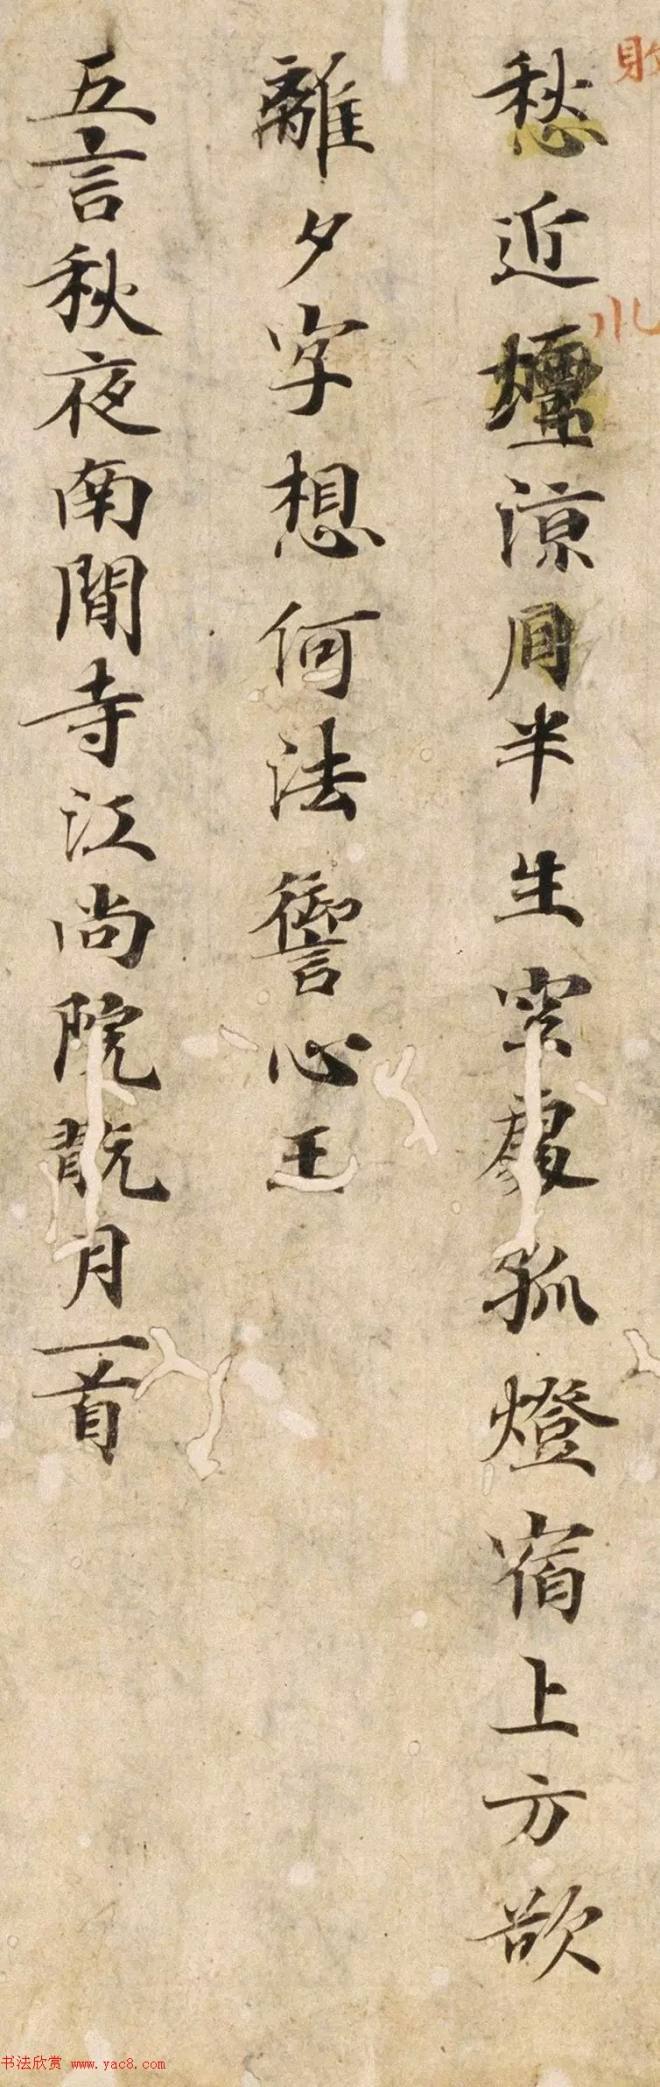 愁近壇涼月半生空處孤燈宿上方欲
離夕字想何法禦心王
五言秋夜南閒寺江尚院翫月一首
书法欣赏 www.yac8.com